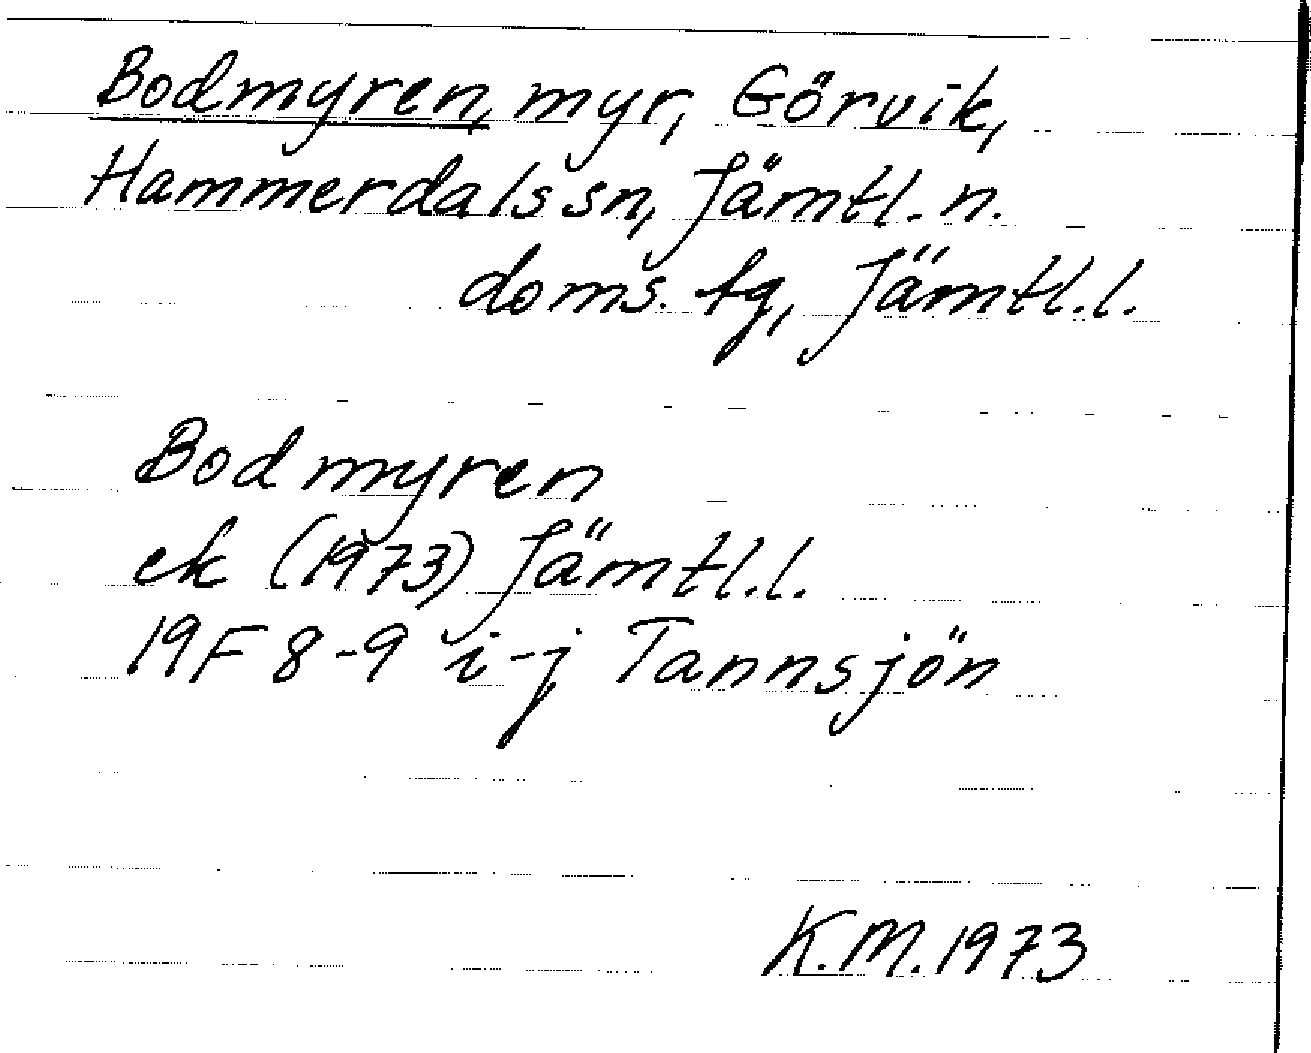 Bodmyren, myr, Görvik,
Hammerdals sn, Jämtl. n.
doms. tg, Jämtl.l.
Bodmyren
ek (1973) Jämtl.l.
19F 8-9 i-j Tannsjön
K.M. 1973